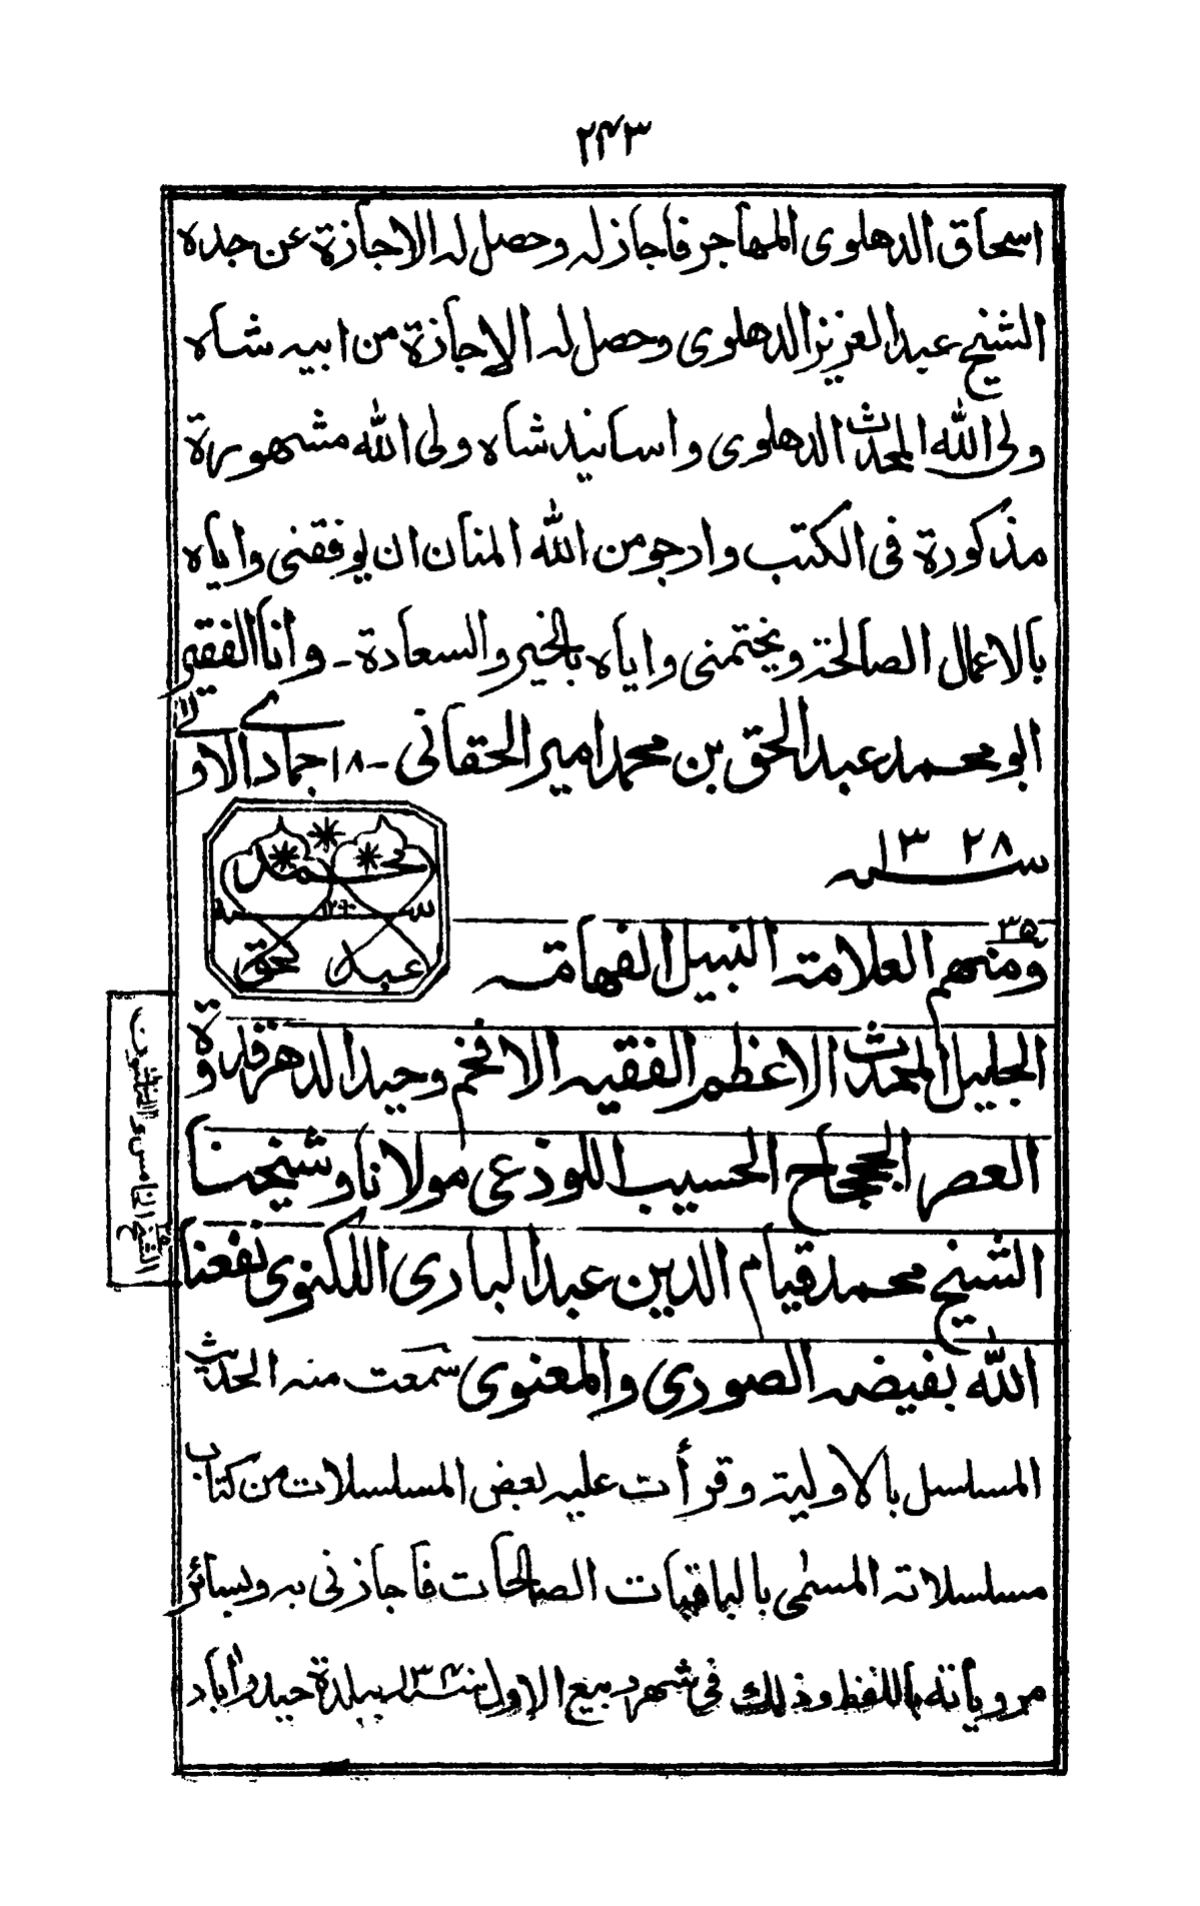 ٢٤٣
اسحاق الدهلوى المهاجر فاجاز له وحصل له الاجازة عن جده
الشيخ عبد العزيز الدهلوى وحصل له الاجازة من ابيه شاه
ولى الله المحدث الدهلوى واسانيد شاه ولى الله مشهورة
مذكورة فى الكتب وارجو من الله المنان ان يوفقنى واياه
بالاعمال الصالحة ويختمنى واياه بالخير والسعادة - وانا الفقير
ابو محمد عبد الحق بن محمد امير الحقانى - ١٨ جمادى الاولى
سنه ١٣٢٨
محمد
سنه
عبد الحق
٣٥
ومنهم العلامة النبيل الفهامة
الجليل المحدث الاعظم الفقيه الافخم وحيد الدهر قدوة
العصر الجحجاح الحسيب اللوذعى مولانا وشيخنا
الشيخ محمد قيام الدين عبد البارى اللكنوى نفعنا
الله بفيضه الصورى والمعنوى سمعت منه الحديث
المسلسل بالاولية وقرأت عليه بعض المسلسلات من كتاب
مسلسلاته المسمى بالباقيات الصالحات فاجازنى به وبسائر
مروياته باللفظ وذلك فى شهر ربيع الاول سنه ببلدة حيدراباد
الشيخ الخامس والثلاثون